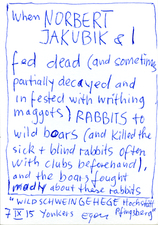 When NORBERT
JAKUBIK & I
fed dead (and sometimes
partially decayed and
infested with writhing
maggots) RABBITS to
wild boars (and killed the
sick + blind rabbits often
with clubs beforehand),
and the boars fought
madly about these rabbits
"WILDSCHWEINGEHEGE Hochstift
7 IX 15 Yonkers Egon Pfingsberg"